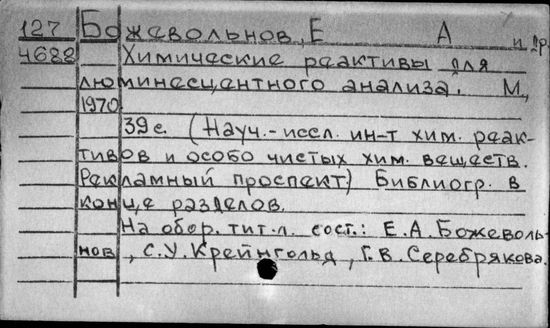 127 Божевольнов, Е А и др.
4688 Химические реактивы для
люминесцентного анализа. М.,
1970
39 с. (Науч.-иссл. ин-т хим. реак-
тивов и особо чистых хим. веществ.
Рекламный проспект) Библиогр. в
конце разделов.
На обор. тит. л. сост.: Е.А. Божеволь-
нов, С.У. Крейнгольд, Г.В. Серебрякова.